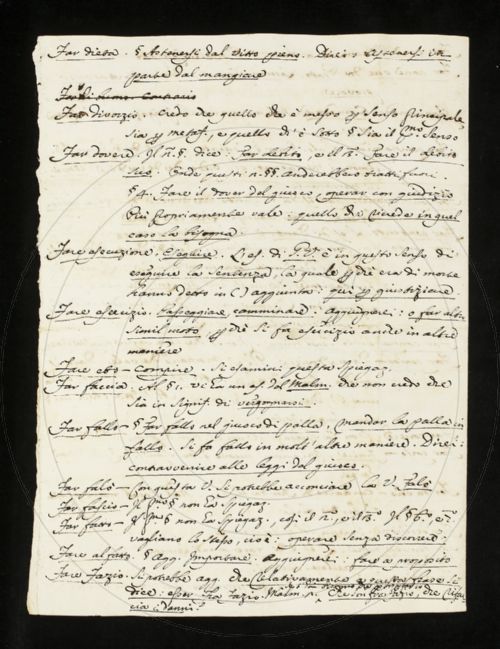 Far dieta. § Astenersi dal vitto pieno. Direi: Astenersi in
parte dal mangiare
Far divorzio. Credo che quello che è messo p senso principale
sia p metaf., e quello ch'è sotto § sia il pmo. senso
Far dovere. Il n. §. dice: Far debito, e il Fare il debito
suo. Onde questi n. §§ anderebbero tratti fuori.
§ 4. Fare il dover del giuoco, operar con giudizio
Più propriamente vale: quello che richiede in quel
caso la bisogna.
Fare esecuzione. Eseguire. L'es. di è in questo senso di
eseguire la sentenza, la quale p che era di morte
hanno detto in ( ) aggiunto: qui p giustiziare
Fare esercizio. Passeggiare, camminare. Aggiugnerei: o far altro
simil moto, p chè si fa esercizio anche in altre
maniere
Fare età - Compire. Si esamini questa spiegaz.
Far faccia. Al § 1. vi è un es. del Malm. che non credo che
sia in signif. di vergognarsi.
Far fallo - § Far fallo nel giuoco di palla, mandar la palla in
fallo. Si fa fallo in molt'altre maniere. Direi:
contravvenire alle leggi del giuoco.
Far falò - Con questa V. si potrebbe acconciare la V. Falò
Far fascio - Il pmo § non ha spiegaz.
Far fatto - Il pmo § non ha spiegaz., così il n., e il Il § 6., e
vagliono lo stesso, cioè: operare senza discorrere.
Fare al fatto. § Agg. Importare. Aggiugnerei: fare a proposito
Fare Fazio. Si potrebbe agg. che relativamente a questa frase si
dice: esser Fra Fazio. Malm. Che son fra Fazio, che rifaccia i danni?